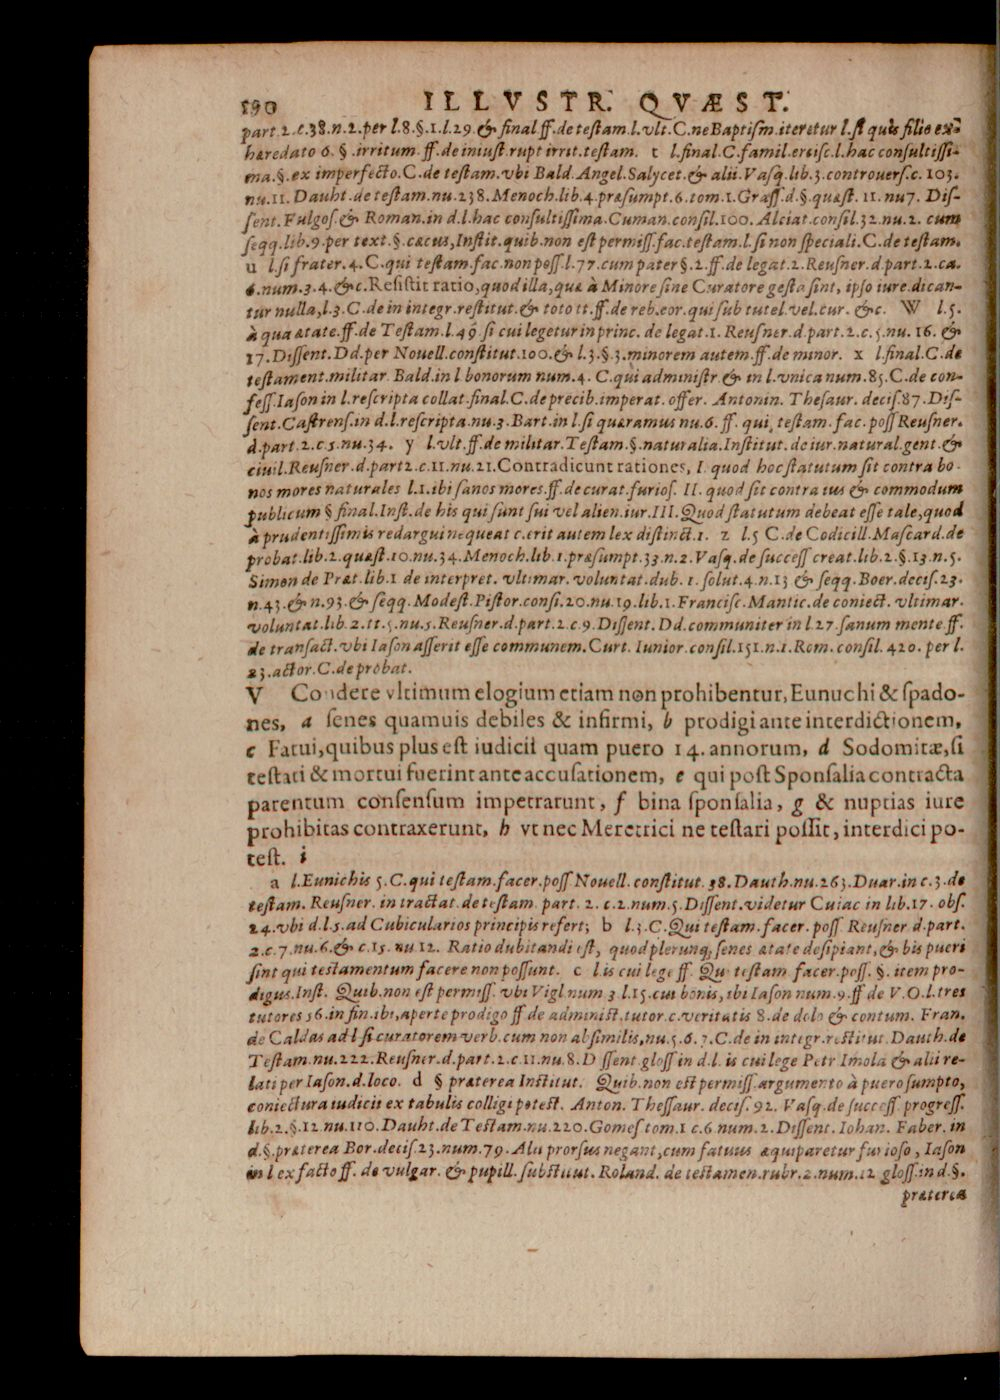 190 ILLVSTR. QVÆST.
part.2.c.38.n.2.per l.8.§.1.l.29.& final ff.de teſtam.l.vlt.C.ne Baptiſm.iteretur l.ſi quis filio ex-
hæredato 6. §.irritum.ff.de iniuſt.rupt irrit.teſtam. t l.final.C.famil.erciſc.l.hac conſultiſſi-
ma.§.ex imperfecto.C.de teſtam.vbi Bald.Angel.Salycet.& alii.Vaſq.lib.3.controuerſ.c.103.
nu.11.Dauht.de teſtam.nu.238.Menoch.lib.4.præſumpt.6.tom.1.Graſſ.d.§.quæſt. 11.nu7. Diſ-
ſent.Fulgoſ.& Roman.in d.l.hac conſultiſſima.Cuman.conſil.100. Alciat.conſil.32.nu.2. cum
ſeqq.lib.9.per text.§.cæcus,Inſtit.quib.non eſt permiſſ.fac.teſtam.l.ſi non ſpeciali.C.de teſtam.
u l.ſi frater.4.C.qui teſtam.fac.non poſſ.l.77.cum pater §.2.ff.de legat.2.Reuſner.d.part.2.ca.
6.num.3.4.&c.Reſiſtit ratio,quod illa,quæ à Minore ſine Curatore geſta ſint, ipſo iure dican-
tur nulla,l.3.C.de in integr.reſtitut.& toto tt.ff.de reb.eor.qui ſub tutel.vel.cur. &c. W l.5.
à qua ætate.ff.de Teſtam.l.49 ſi cui legetur in princ. de legat.1. Reuſner.d.part.2.c.5.nu.16. &
17.Diſſent.Dd.per Nouell.conſtitut.100.& l.3.§.3.minorem autem.ff.de minor. x l.final.C.de
teſtament.militar Bald.in l bonorum num.4. C.qui adminiſtr.& in l.vnica num.85.C.de con-
feſſ.Iaſon in l.reſcripta collat.final.C.de precib.imperat.offer. Antonin. Theſaur. deciſ.87.Diſ-
ſent.Caſtrenſ.in d.l.reſcripta.nu.3.Bart.in l.ſi quæramus nu.6. ff. qui teſtam.fac.poſſ Reuſner.
d.part.2.c.5.nu.34. y l.vlt.ff.de militar.Teſtam.§.naturalia.Inſtitut.de iur.natural.gent.&
ciuil.Reuſner.d.part2.c.11.nu.21.Contradicunt rationes, I quod hoc ſtatutum ſit contra bo-
nos mores naturales l.1.ibi ſanos mores.ff.de curat.furioſ. II. quod ſit contra ius & commodum
publicum § final.Inſt.de his qui ſunt ſui vel alien.iur.III.Quod ſtatutum debeat eſſe tale,quod
à prudentiſſimis redargui nequeat c.erit autem lex diſtinct.1. z l.5 C.de Codicill.Maſcard.de
probat.lib.2.quæſt.10.nu.34.Menoch.lib.1.præſumpt.33.n.2.Vaſq.de ſucceſſ creat.lib.2.§.13.n.5.
Simon de Præt.lib.1 de interpret. vltimar.voluntat.dub.1.ſolut.4.n.13 & ſeqq.Boer.deciſ.23.
n.43.& n.93.& ſeqq.Modeſt.Piſtor.conſi.20.nu.19.lib.1.Franciſc.Mantic.de coniect. vltimar.
voluntat.lib.2.tt.5.nu.5.Reuſner.d.part.2.c.9.Diſſent.Dd.communiter in l 27.ſanum mente.ff.
de tranſact.vbi Iaſon aſſerit eſſe communem.Curt. Iunior.conſil.151.n.1.Rom. conſil. 420. per l.
23.actor.C.de probat.
V Condere vltimum elogium etiam non prohibentur, Eunuchi & ſpado-
nes, a ſenes quamuis debiles & infirmi, b prodigi ante interdictionem,
c Fatui,quibus plus eſt iudicii quam puero 14. annorum, d Sodomitæ,ſi
teſtati & mortui fuerint ante accuſationem, e qui poſt Sponſalia contracta
parentum conſenſum impetrarunt, f bina ſponſalia, g & nuptias iure
prohibitas contraxerunt, h vt nec Meretrici ne teſtari poſſit, interdici po-
teſt. i
a l.Eunichis 5.C.qui teſtam.facer.poſſ Nouell. conſtitut.38.Dauth.nu.263.Duar.in c.3.de
teſtam. Reuſner. in tractat.de teſtam. part. 2. c.2.num.5.Diſſent.videtur Cuiac in lib.17. obſ.
24.vbi d.l.5.ad Cubicularios principis refert; b l.3.C.Qui teſtam.facer. poſſ. Reuſner d.part.
2.c.7.nu.6.& c.15.nu.12. Ratio dubitandi eſt, quod plerunq; ſenes ætate deſipiant,& bis pueri
ſint qui testamentum facere non poſſunt. c l is cui lege ff. Qui teſtam facer.poſſ. §. item pro-
digus.Inſt. Quib.non eſt permiſſ. vbi Vigl num 3 l.15.cui bonis, ibi Iaſon num.9.ff de V.O.l.tres
tutores 56.in fin.ibi,aperte prodigo ff de adminiſt.tutor.c.veritatis 8.de dolo & contum. Fran.
de Caldas ad l ſi curatorem verb.cum non abſimilis,nu.5.6.7.C.de in integr.reſtitut.Dauth.de
Teſtam.nu.222.Reuſner.d.part.2.c.11.nu.8.Diſſent.gloſſ in d.l. is cui lege Petr Imola & alii re-
lati per Iaſon.d.loco. d § præterea Inſtitut. Quib.non eſt permiſſ.argumento à puero ſumpto,
coniectura iudicii ex tabulis colligi poteſt. Anton. Theſſaur. deciſ. 92. Vaſq.de ſucceſſ. progreſſ.
lib.2.§.12.nu.110.Dauht.de Teſtam.nu.220.Gomeſ tom.1 c.6.num.2.Diſſent. Iohan. Faber. in
d.§.præterea Bor.deciſ.23.num.79. Alii prorſus negant,cum fatuus æquiparetur furioſo, Iaſon
in l ex facto ff. de vulgar. & pupill.ſubſtitut. Roland. de teſtamen.rubr.2.num.12 gloſſ.in d.§.
præterea